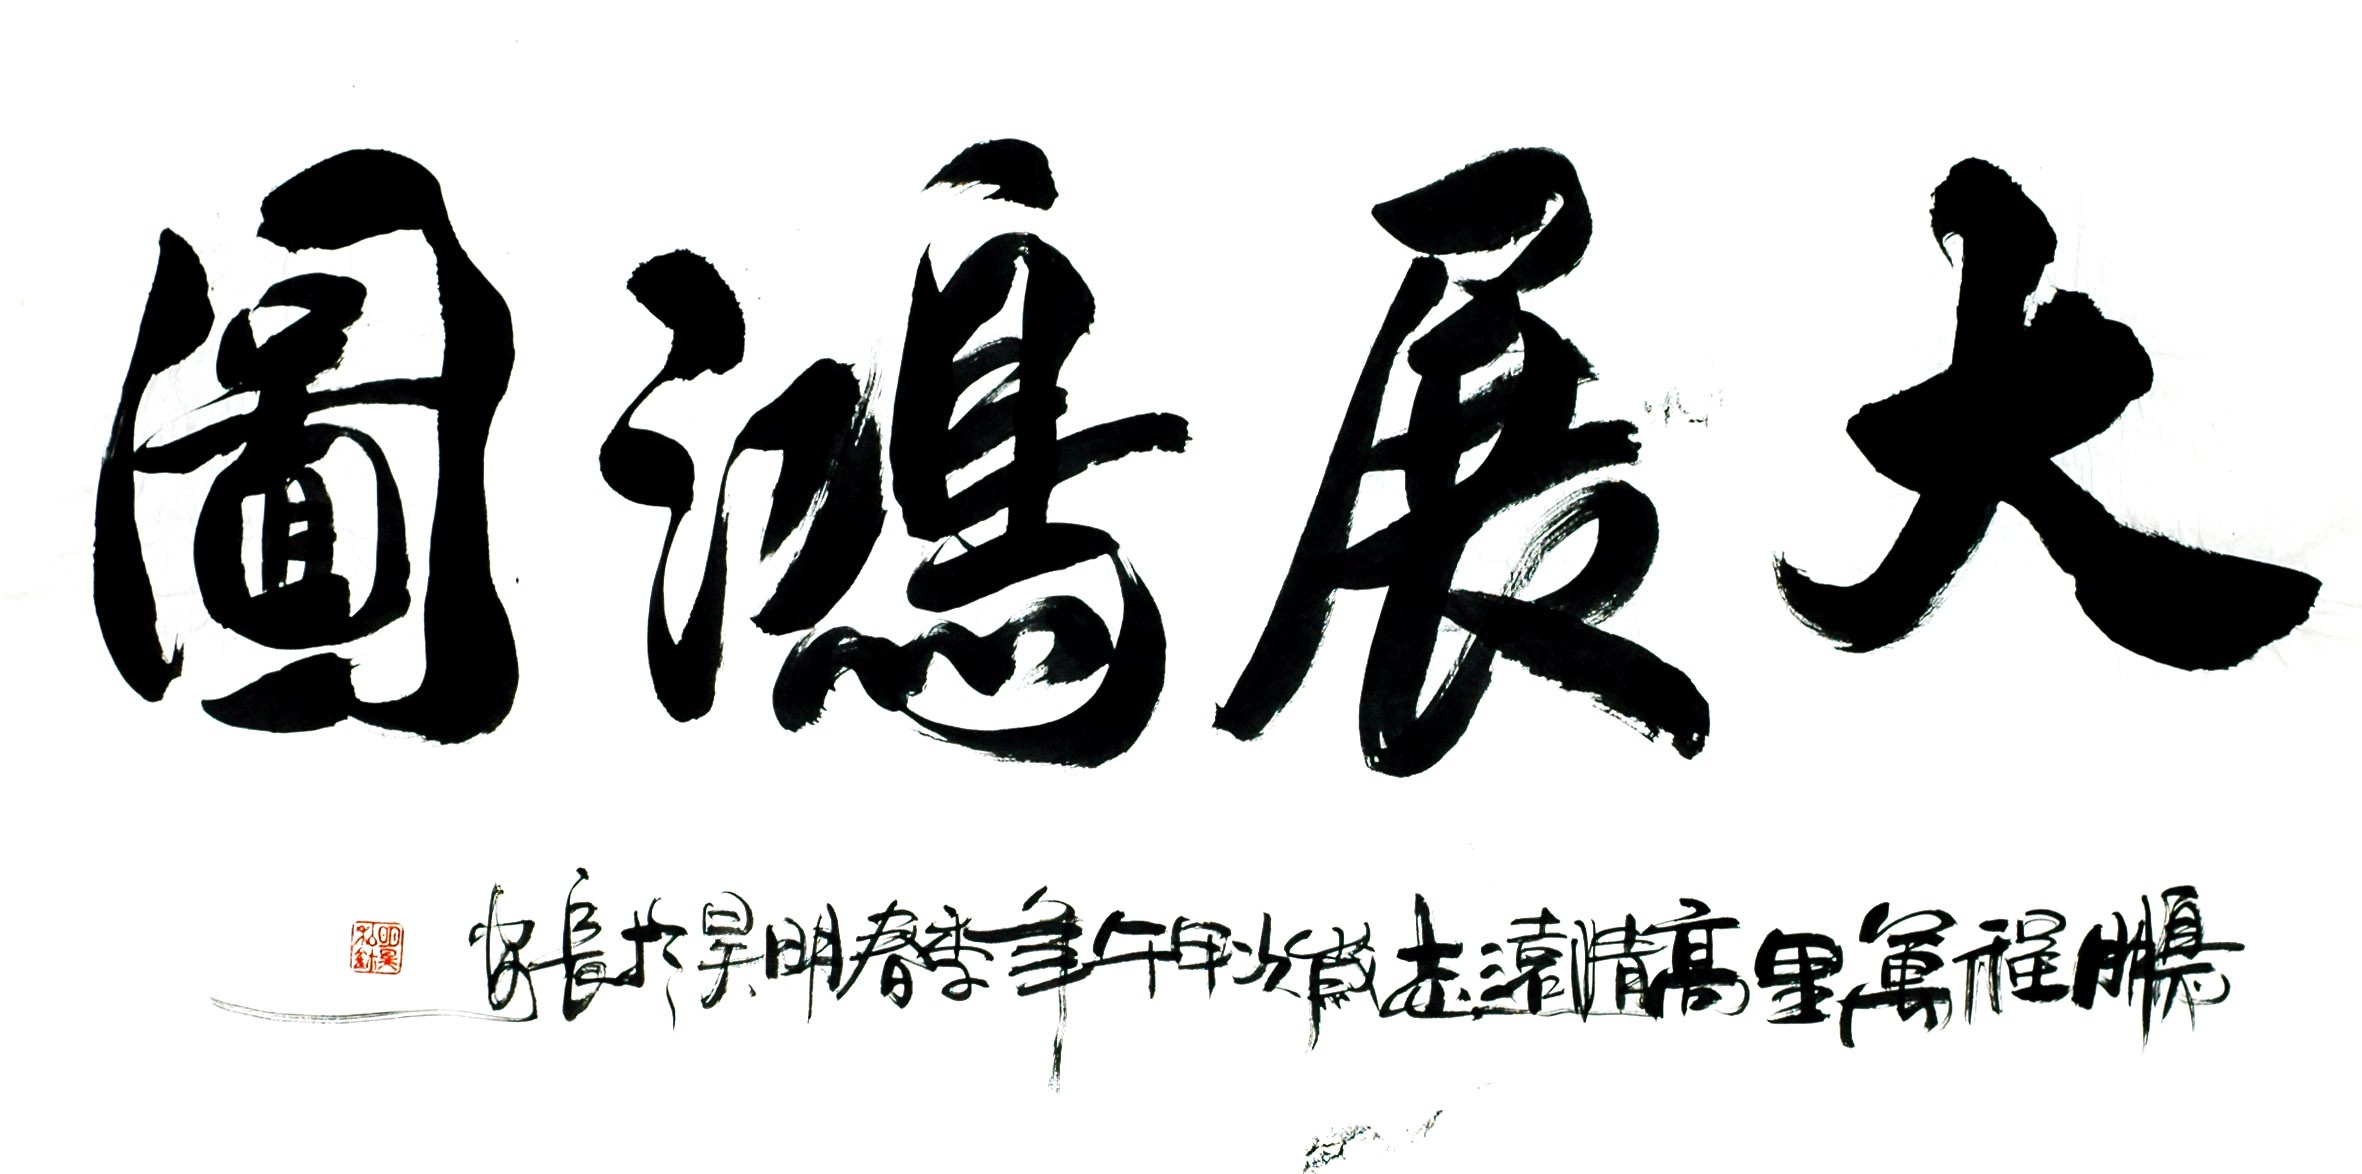 大展鴻圖
鵬程萬里高情遠志歲次甲午年季春明昊於長安
明昊私